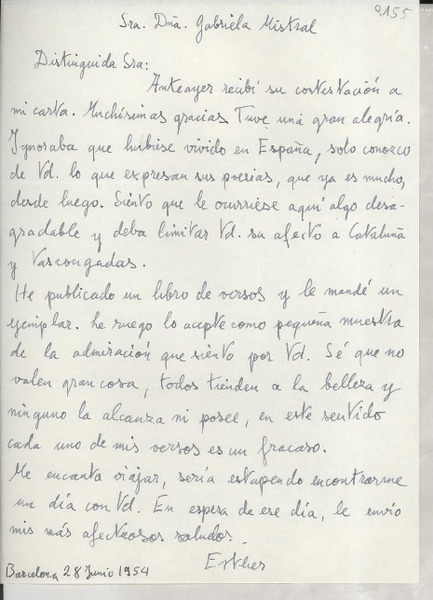 9155
Sra. Dña. Gabriela Mistral
Distinguida Sra:
Anteayer recibí su contestación a
mi carta. Muchísimas gracias Tuve una gran alegría.
Ignoraba que hubiese vivido en España, solo conozco
de Vd. lo que expresan sus poesías, que ya es mucho,
desde luego. Siento que le ocurriese aquí algo desa-
gradable y deba limitar Vd. su afecto a Cataluña
y Vascongadas.
He publicado un libro de versos y le mandé un
ejemplar. Le ruego lo acepte como pequeña muestra
de la admiración que siento por Vd. Sé que no
valen gran cosa, todos tienden a la belleza y
ninguno la alcanza ni posee, en este sentido
cada uno de mis versos es un fracaso.
Me encanta viajar, sería estupendo encontrarme
un día con Vd. En espera de ese día, le envío
mis más afectuosos saludos.
Esther
Barcelona 28 Junio 1954